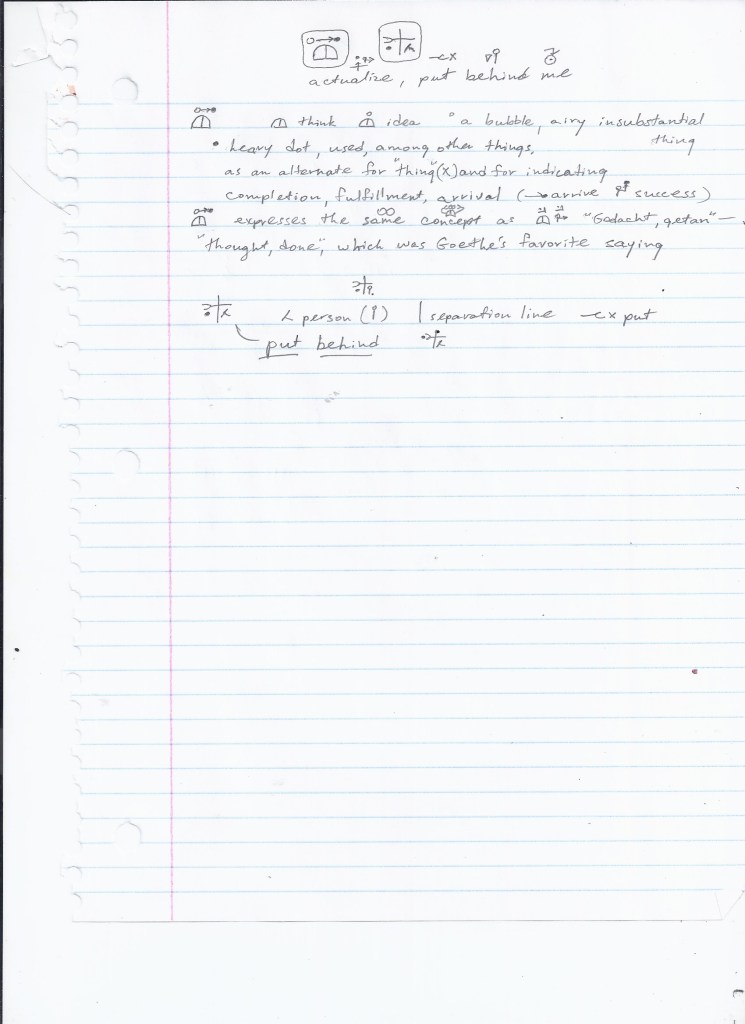 actualize, put behind me
think idea a bubble, airy insubstantial
thing
• heavy dot, used, among other things,
as an alternate for "thing" (x) and for indicating
completion, fulfillment, arrival (→ arrive success)
expresses the same concept as "Gedacht, getan" —
"thought, done", which was Goethe's favorite saying
person ( ) | separation line put
put behind